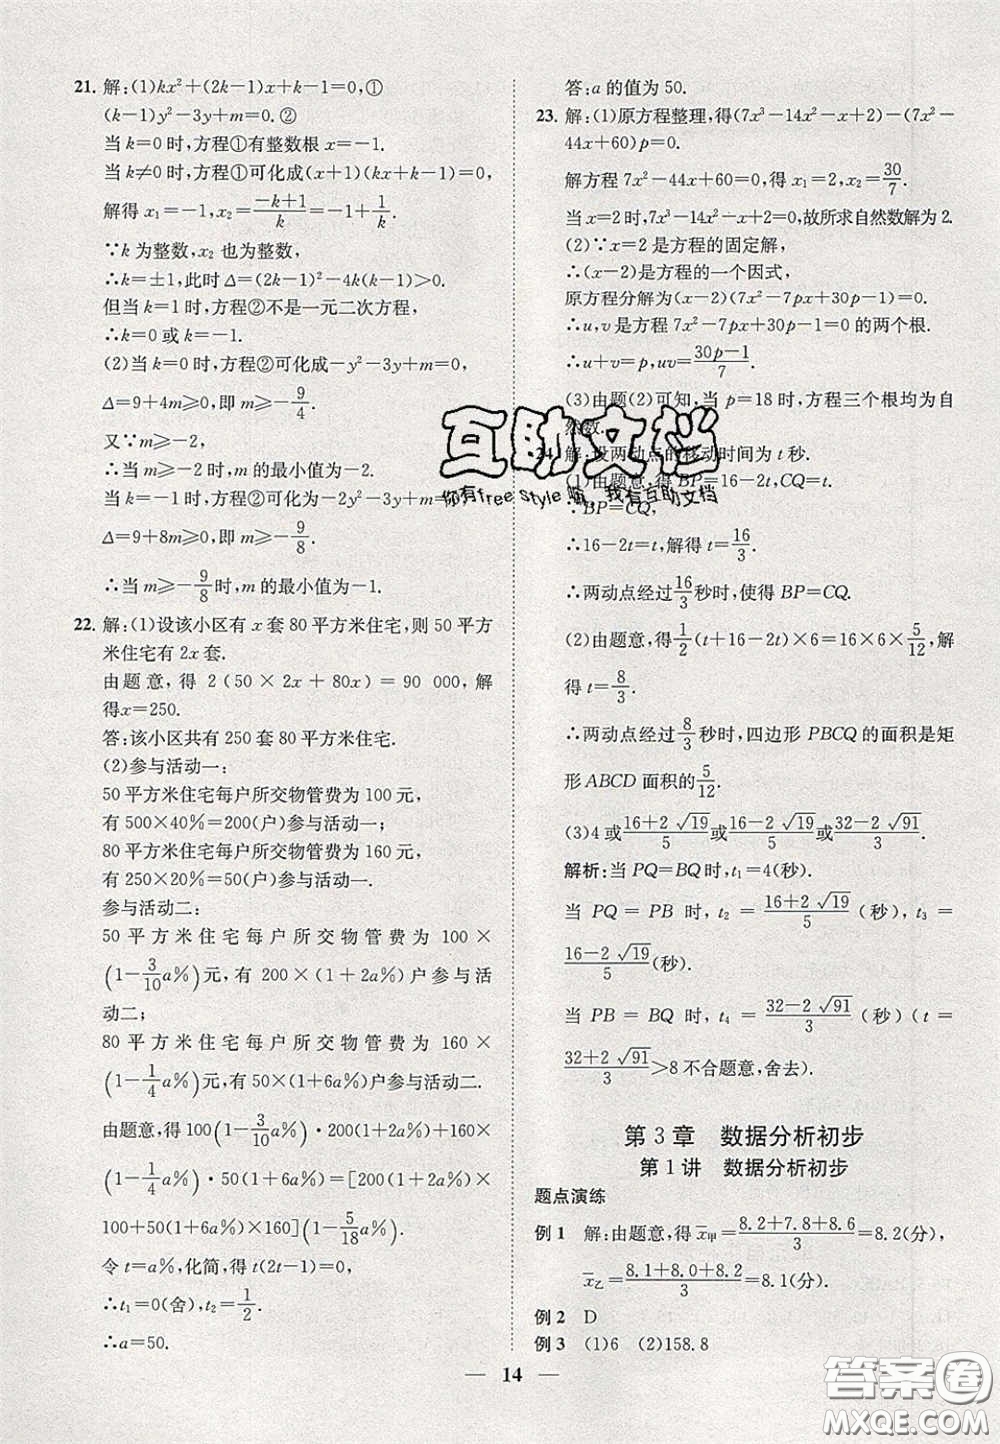 21. 解:(1)kx²+(2k-1)x+k-1=0,①
(k-1)y²-3y+m=0.②
当k=0时,方程①有整数根x=-1.
当k≠0时,方程①可化成(x+1)(kx+k-1)=0,
解得x₁=-1,x₂=\frac{-k+1}{k}=-1+\frac{1}{k}.
∵k为整数,x₂也为整数,
∴k=±1,此时Δ=(2k-1)²-4k(k-1)>0.
但当k=1时,方程②不是一元二次方程,
∴k=0或k=-1.
(2)当k=0时,方程②可化成-y²-3y+m=0,
Δ=9+4m≥0,即m≥-\frac{9}{4}.
又∵m≥-2,
∴当m≥-2时,m的最小值为-2.
当k=-1时,方程②可化成-2y²-3y+m=0,
Δ=9+8m≥0,即m≥-\frac{9}{8}.
∴当m≥-\frac{9}{8}时,m的最小值为-1.
22. 解:(1)设该小区有x套80平方米住宅,则50平方
米住宅有2x套.
由题意,得2(50×2x+80x)=90 000,解
得x=250.
答:该小区共有250套80平方米住宅.
(2)参与活动一:
50平方米住宅每户所交物管费为100元,
有500×40%=200(户)参与活动一;
80平方米住宅每户所交物管费为160元,
有250×20%=50(户)参与活动一.
参与活动二:
50平方米住宅每户所交物管费为100×
(1-\frac{3}{10}a%)元,有200×(1+2a%)户参与活
动二;
80平方米住宅每户所交物管费为160×
(1-\frac{1}{4}a%)元,有50×(1+6a%)户参与活动二.
由题意,得100(1-\frac{3}{10}a%)·200(1+2a%)+160×
(1-\frac{1}{4}a%)·50(1+6a%)=[200(1+2a%)×
100+50(1+6a%)×160](1-\frac{5}{18}a%).
令t=a%,化简,得t(2t-1)=0.
∴t₁=0(舍),t₂=\frac{1}{2}.
∴a=50.
答:a的值为50.
23. 解:(1)原方程整理,得(7x³-14x²-x+2)-(7x²-
44x+60)p=0.
解方程7x²-44x+60=0,得x₁=2,x₂=\frac{30}{7}.
当x=2时,7x³-14x²-x+2=0,故所求自然数解为2.
(2)∵x=2是方程的固定解,
∴(x-2)是方程的一个因式,
原方程分解为(x-2)(7x²-7px+30p-1)=0.
∴u,v是方程7x²-7px+30p-1=0的两个根.
∴u+v=p,uv=\frac{30p-1}{7}.
(3)由题(2)可知,当p=18时,方程三个根均为自
然数.
24. 解:设两动点的移动时间为t秒.
(1)由题意,得BP=16-2t,CQ=t.
∵BP=CQ,
∴16-2t=t,解得t=\frac{16}{3}.
∴两动点经过\frac{16}{3}秒时,使得BP=CQ.
(2)由题意,得\frac{1}{2}(t+16-2t)×6=16×6×\frac{5}{12},解
得t=\frac{8}{3}.
∴两动点经过\frac{8}{3}秒时,四边形PBCQ的面积是矩
形ABCD面积的\frac{5}{12}.
(3)4或\frac{16+2√19}{5}或\frac{16-2√19}{5}或\frac{32-2√91}{3}.
解析:当PQ=BQ时,t₁=4(秒).
当PQ=PB时,t₂=\frac{16+2√19}{5}(秒),t₃=
\frac{16-2√19}{5}(秒).
当PB=BQ时,t₄=\frac{32-2√91}{3}(秒)(t=
\frac{32+2√91}{3}>8不合题意,舍去).
第3章 数据分析初步
第1讲 数据分析初步
题点演练
例1 解:由题意,得x̄甲=\frac{8.2+7.8+8.6}{3}=8.2(分),
x̄乙=\frac{8.1+8.0+8.2}{3}=8.1(分).
例2 D
例3 (1)6 (2)158.8
14
互助文档
你有free style嘛,我有互助文档
答案圈
MXQE.COM